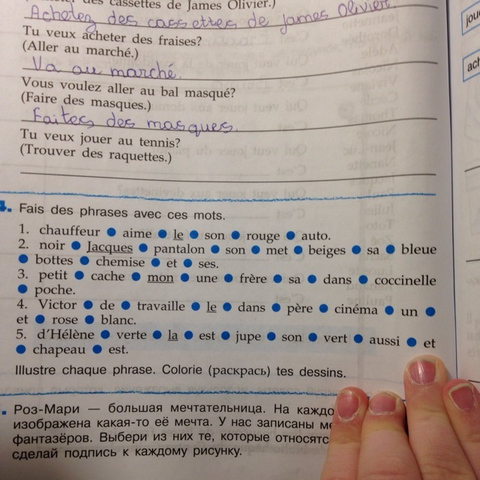 des cassettes de James Olivier.)
Achetez des cassettes de James Olivier.
Tu veux acheter des fraises?
(Aller au marché.)
Va au marché.
Vous voulez aller au bal masqué?
(Faire des masques.)
Faites des masques.
Tu veux jouer au tennis?
(Trouver des raquettes.)
4. Fais des phrases avec ces mots.
1. chauffeur ● aime ● le ● son ● rouge ● auto.
2. noir ● Jacques ● pantalon ● son ● met ● beiges ● sa ● bleue
● bottes ● chemise ● et ● ses.
3. petit ● cache ● mon ● une ● frère ● sa ● dans ● coccinelle
● poche.
4. Victor ● de ● travaille ● le ● dans ● père ● cinéma ● un ●
et ● rose ● blanc.
5. d'Hélène ● verte ● la ● est ● jupe ● son ● vert ● aussi ● et
● chapeau ● est.
Illustre chaque phrase. Colorie (раскрась) tes dessins.
Роз-Мари — большая мечтательница. На каждо
изображена какая-то её мечта. У нас записаны ме
фантазёров. Выбери из них те, которые относятс
сделай подпись к каждому рисунку.